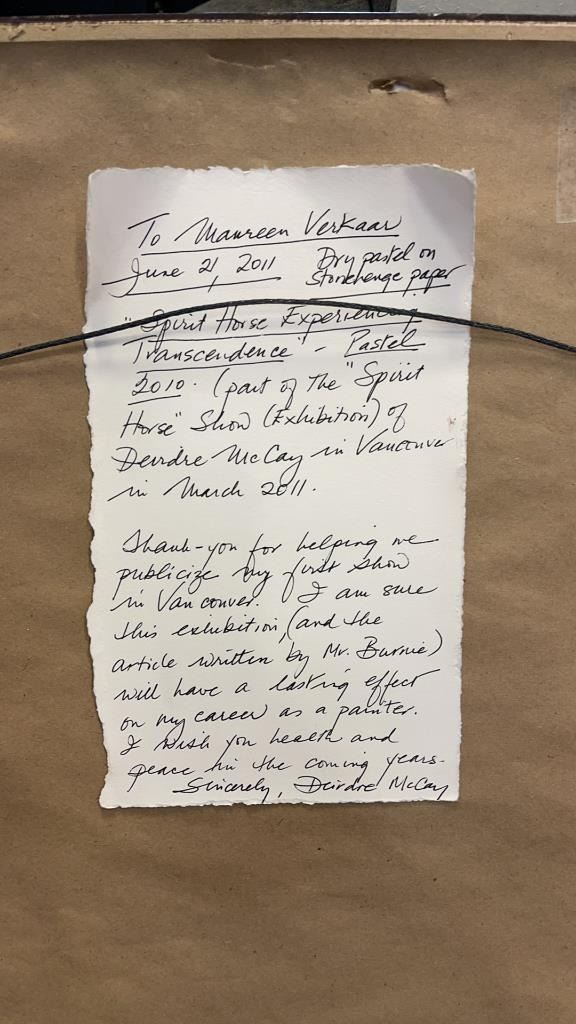 To Maureen Verkaar
June 21, 2011 Dry pastel on
Stonehenge paper
"Spirit Horse Experiencing
Transcendence" - Pastel
2010. (part of the "Spirit
Horse" Show (Exhibition) of
Deirdre McCay in Vancouver
in March 2011.
Thank-you for helping me
publicize my first show
in Vancouver. I am sure
this exhibition, (and the
article written by Mr. Burnie)
will have a lasting effect
on my career as a painter.
I wish you health and
peace in the coming years.
Sincerely, Deirdre McCay